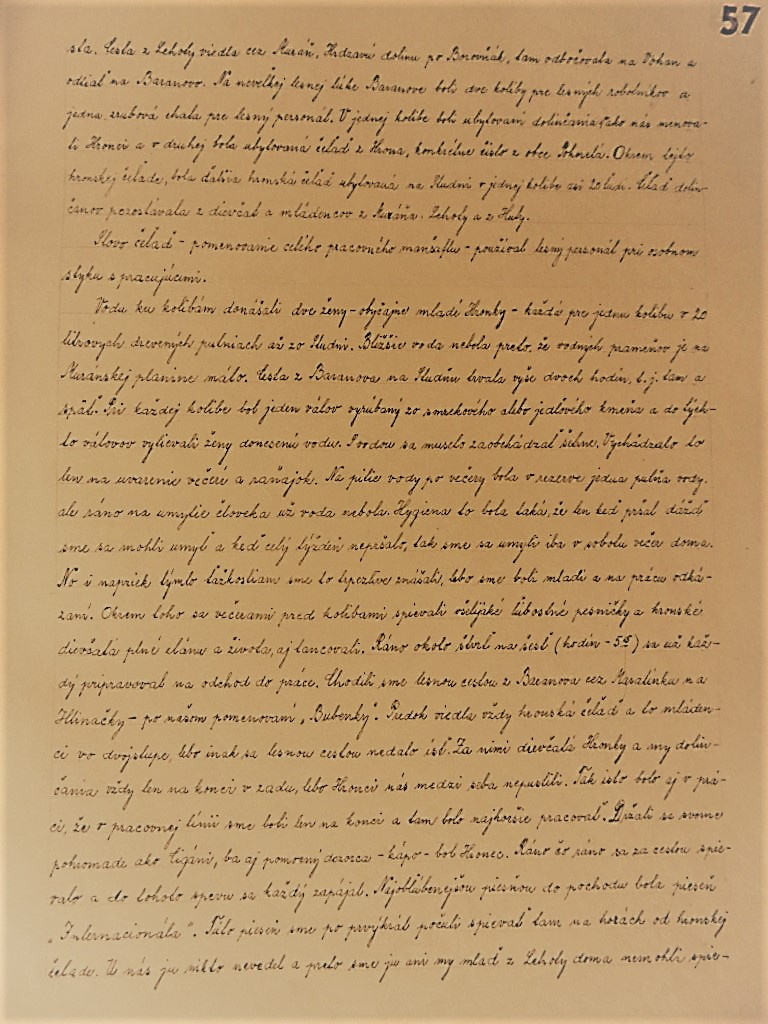 57
sta. Cesta z Lehoty viedla cez Muráň, Hrdzavú dolinu po Borovňák, tam odbočovala na Vohan a
odtiaľ na Baranovo. Na neveľkej lesnej lúke Baranove boli dve koliby pre lesných robotníkov a
jedna zrubová chata pre lesný personál. V jednej kolibe boli ubytovaní dolinčania, ako nás menova-
li Hronci a v druhej bola ubytovaná čeľaď z Hrona, konkrétne čisto z obce Pohorelá. Okrem tejto
hronskej čeľade, bola ďalšia hronská čeľaď ubytovaná na Studni v jednej kolibe asi 20 ľudí. Čeľaď dolin-
čanov pozostávala z dievčat a mládencov z Muráňa, Lehoty a z Huty.
Slovo čeľaď - pomenovanie celého pracovného manšaftu - používal lesný personál pri osobnom
styku s pracujúcimi.
Vodu ku kolibám donášali dve ženy - obyčajne mladé Hronky - každá pre jednu kolibu v 20
litrových drevených putniach až zo Studní. Bližšie voda nebola preto, že vodných prameňov je na
Muránskej planine málo. Cesta z Baranova na Studňu trvala vyše dvoch hodín, t. j. tam a
späť. Pri každej kolibe bol jeden válov vyrúbaný zo smrekového alebo jedľového kmeňa a do tých-
to válovov vylievali ženy donesenú vodu. S vodou sa muselo zaobchádzať šetrne. Vychádzalo to
len na uvarenie večerí a raňajok. Na pitie vody po večery bola v rezerve jedna putňa vody.
ale ráno na umytie človeka už voda nebola. Hygiena to bola taká, že len keď pršal dážď
sme sa mohli umyť a keď celý týždeň nepršalo, tak sme sa umyli iba v sobotu večer doma.
No i napriek týmto ťažkostiam sme to trpezlive znášali, lebo sme boli mladí a na prácu odká-
zaní. Okrem toho sa večerami pred kolibami spievali ošelijaké ľúbostné pesničky a hronské
dievčatá plné elánu a života, aj tancovali. Ráno okolo štvrť na šesť (hodín - 5¹⁵) sa už kaž-
dý pripravoval na odchod do práce. Chodili sme lesnou cestou z Baranova cez Maratínku na
Hlinačky - po našom pomenovaní „Bubenky". Predok viedla vždy hronská čeľaď a to mláden-
ci vo dvojstupe, lebo inak sa lesnou cestou nedalo ísť. Za nimi dievčatá Hronky a my dolin-
čania vždy len na konci v zadu, lebo Hronci nás medzi seba nepustili. Tak isto bolo aj v prá-
ci, že v pracovnej línii sme boli len na konci a tam bolo najhoršie pracovať. Držali sa svorne
pohromade ako Cigáni, ba aj pomocný dozorca - kápo - bol Hronec. Ráno čo ráno sa za cestou spie-
valo a do tohoto spevu sa každý zapájal. Najobľúbenejšou piesňou do pochodu bola pieseň
„Internacionála". Túto pieseň sme po prvýkrát počuli spievať tam na horách od hronskej
čeľade. U nás ju nikto nevedel a preto sme ju ani my mlaď z Lehoty doma nemohli spie-